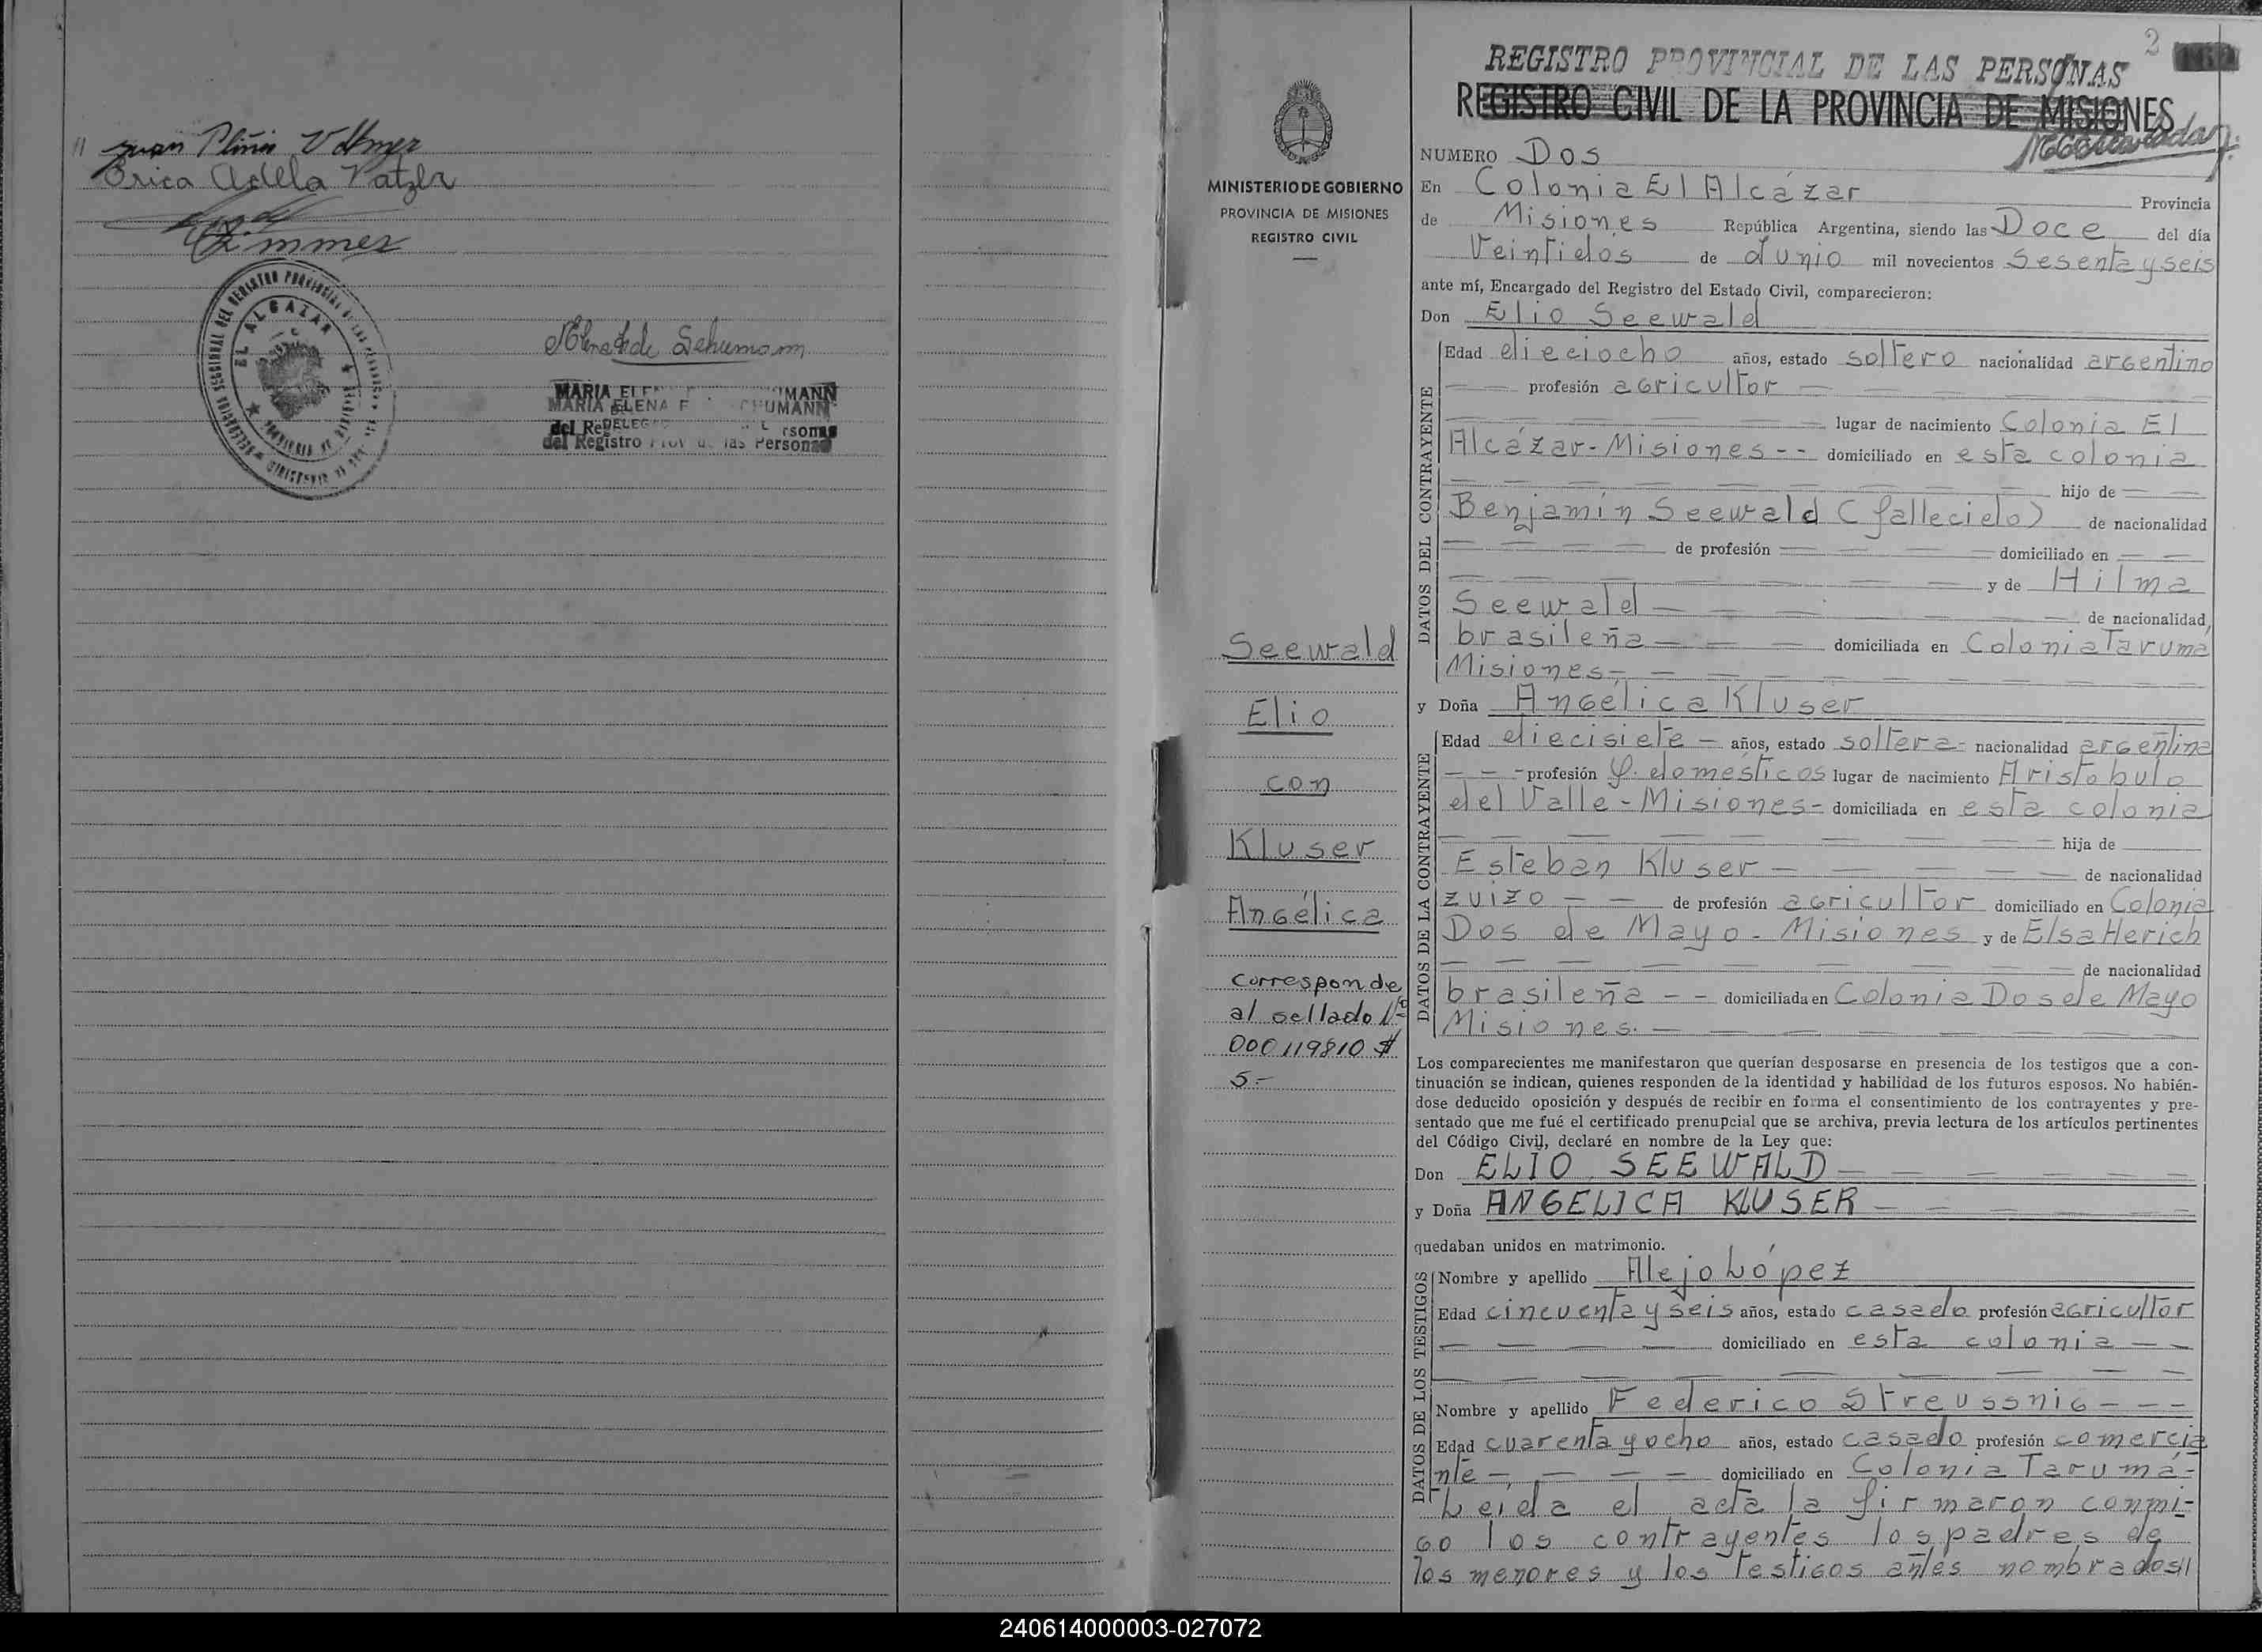 Juan Plinio Vollmer
Erica Adela Patzer
Zimmer
DELEGACION SECCIONAL DEL REGISTRO PROVINCIAL DE LAS PERSONAS
EL ALCAZAR
Elena F de Schumann
MARIA ELENA F SCHUMANN
del Registro Prov de las Personas
MINISTERIO DE GOBIERNO
PROVINCIA DE MISIONES
REGISTRO CIVIL
Seewald
Elio
con
Kluser
Angélica
Corresponde
al sellado Nº
000119810 $
5.-
2
REGISTRO PROVINCIAL DE LAS PERSONAS
REGISTRO CIVIL DE LA PROVINCIA DE MISIONES
NUMERO Dos
En Colonia El Alcázar Provincia
de Misiones República Argentina, siendo las Doce del día
Veintidós de Junio mil novecientos Sesenta y seis
ante mí, Encargado del Registro del Estado Civil, comparecieron:
Don Elio Seewald
DATOS DEL CONTRAYENTE
Edad dieciocho años, estado soltero nacionalidad argentino
profesión agricultor
lugar de nacimiento Colonia El
Alcázar-Misiones-- domiciliado en esta colonia
hijo de
Benjamín Seewald (fallecido) de nacionalidad
de profesión domiciliado en
y de Hilma
Seewald de nacionalidad,
brasileña domiciliada en Colonia Taruma
Misiones-
y Doña Angélica Kluser
DATOS DE LA CONTRAYENTE
Edad diecisiete - años, estado soltera- nacionalidad argentina
profesión q. domésticos lugar de nacimiento Aristobulo
del Valle-Misiones- domiciliada en esta colonia
hija de
Esteban Kluser de nacionalidad
zuizo de profesión agricultor domiciliado en Colonia
Dos de Mayo-Misiones y de Elsa Herich
de nacionalidad
brasileña -- domiciliada en Colonia Dos de Mayo
Misiones.
Los comparecientes me manifestaron que querían desposarse en presencia de los testigos que a con-
tinuación se indican, quienes responden de la identidad y habilidad de los futuros esposos. No habién-
dose deducido oposición y después de recibir en forma el consentimiento de los contrayentes y pre-
sentado que me fué el certificado prenupcial que se archiva, previa lectura de los artículos pertinentes
del Código Civil, declaré en nombre de la Ley que:
Don ELIO SEEWALD
y Doña ANGELICA KLUSER
quedaban unidos en matrimonio.
DATOS DE LOS TESTIGOS
Nombre y apellido Alejo López
Edad cincuenta y seis años, estado casado profesión agricultor
domiciliado en esta colonia --
Nombre y apellido Federico Streussnig ---
Edad cuarenta y ocho años, estado casado profesión comercia
nte - domiciliado en Colonia Tarumá-
Leída el acta la firmaron conmi-
go los contrayentes los padres de
los menores y los testigos antes nombrados//
240614000003-027072